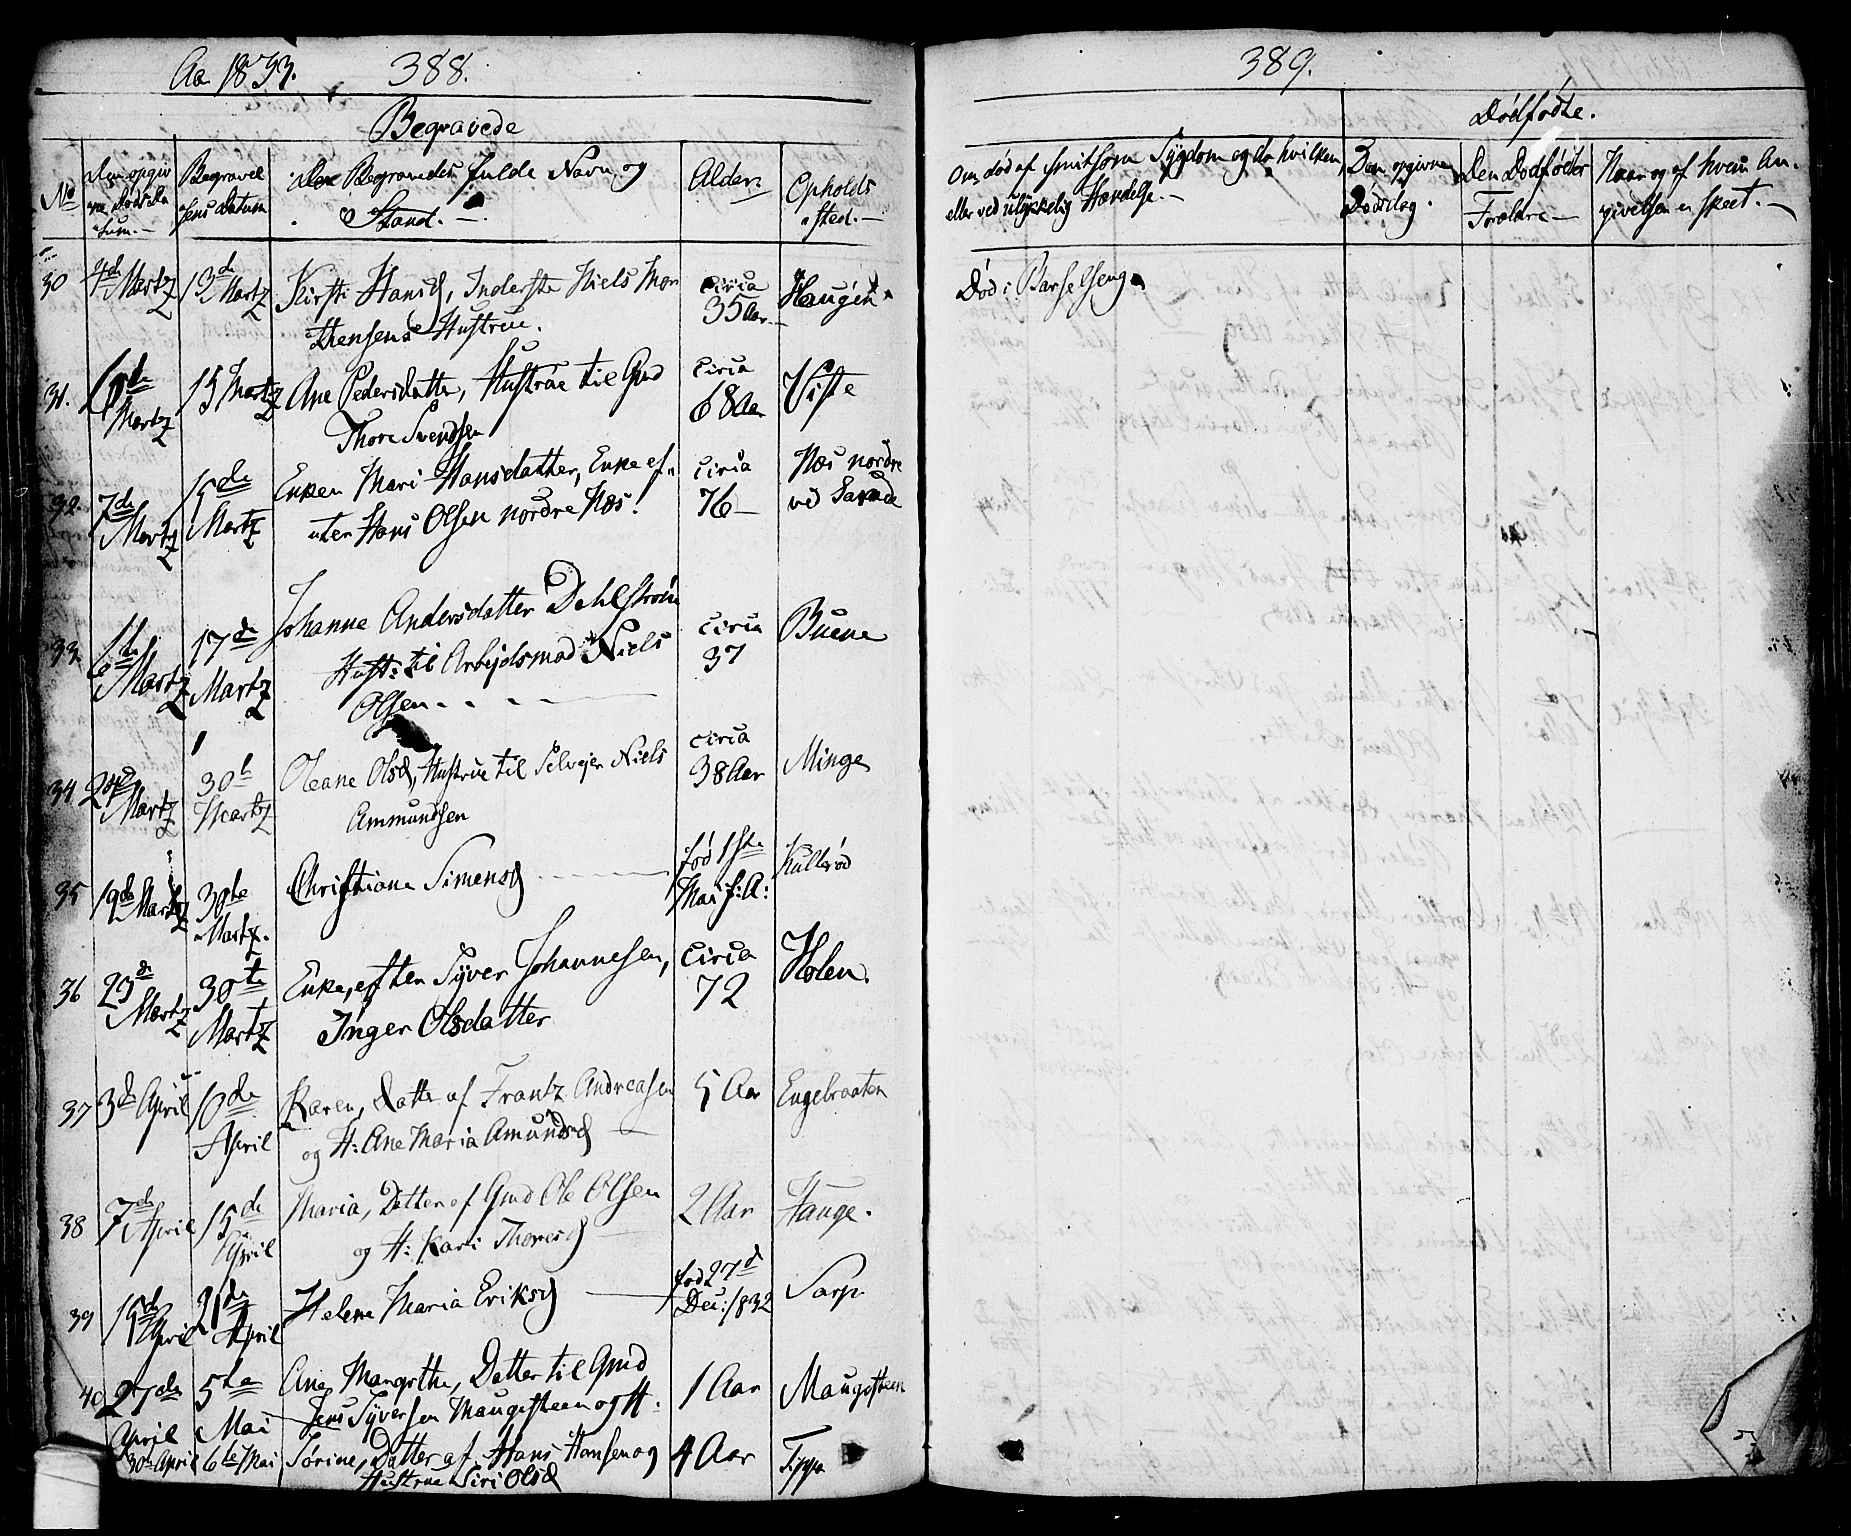 Aar 1833.
388.
Begravede
No
Den opgivne Døds Datum.
Begravelsens Datum
Den Begravedes fulde Navn og Stand.
Alder.
Opholdssted.
30 4de Martz 13de Martz Kirsti Hansd, Inderste Niels Mor circa Haugen
Stensens Hustrue. 35 Aar
31. Martz 15 Martz Ane Pedersdatter, Hustrue til Gmd circa Viste
Thore Svendsen 68 Aar
32. 7de Martz 15de Martz Enken Mari Hansdatter, Enke ef- circa Næs nordre
ter Hans Olsen nordre Næs. 76 ved
33. Martz 17de Martz Johanne Andersdatter Dehlstrøm circa Buene
Hust: til Arbejdsmad Niels 37
Olsen
34 24de Martz 30te Martz Oleane Olsd, Hustrue til Selvejer Niels circa Minge
Ammundsen 38 Aar
35 19de Martz 30te Martz Christiane Simensd født 1ste Kullerød
Mai f: A:
36 23de Martz 30te Martz Enke, efter Syver Johannesen, circa Holen.
Inger Olsdatter 72
37 3de April 10de April Karen, Datter af Frantz Andreasen 5 Aar Engebraaten
og H: Ane Maria Amundsd
38 7de April 15de April Maria, Datter af Gmd Ole Olsen 2 Aar Hauge.
og H: Kari Thoresd
39 15de April 21de April Helene Maria Eriksd fød 27d Sarp.
Dec: 1832
40 27de April 5te Mai Ane Margrthe, Datter til Gmd 1 Aar Maugesteen
Jens Syversen Maugesteen og H:
30te April 6te Mai Sørine, Datter af Hans Hansen og 4 Aar
Hustrue Siri Olsd
389.
Dødfødte.
Om død af smitsom Sygdom og da hvilken,
eller ved ulykkelig Hændelse.
Den opgivne Dødsdag.
Den Dødfødtes Forældre
Naar og af hvem Angivelsen er skeet.
Død i Barselseng